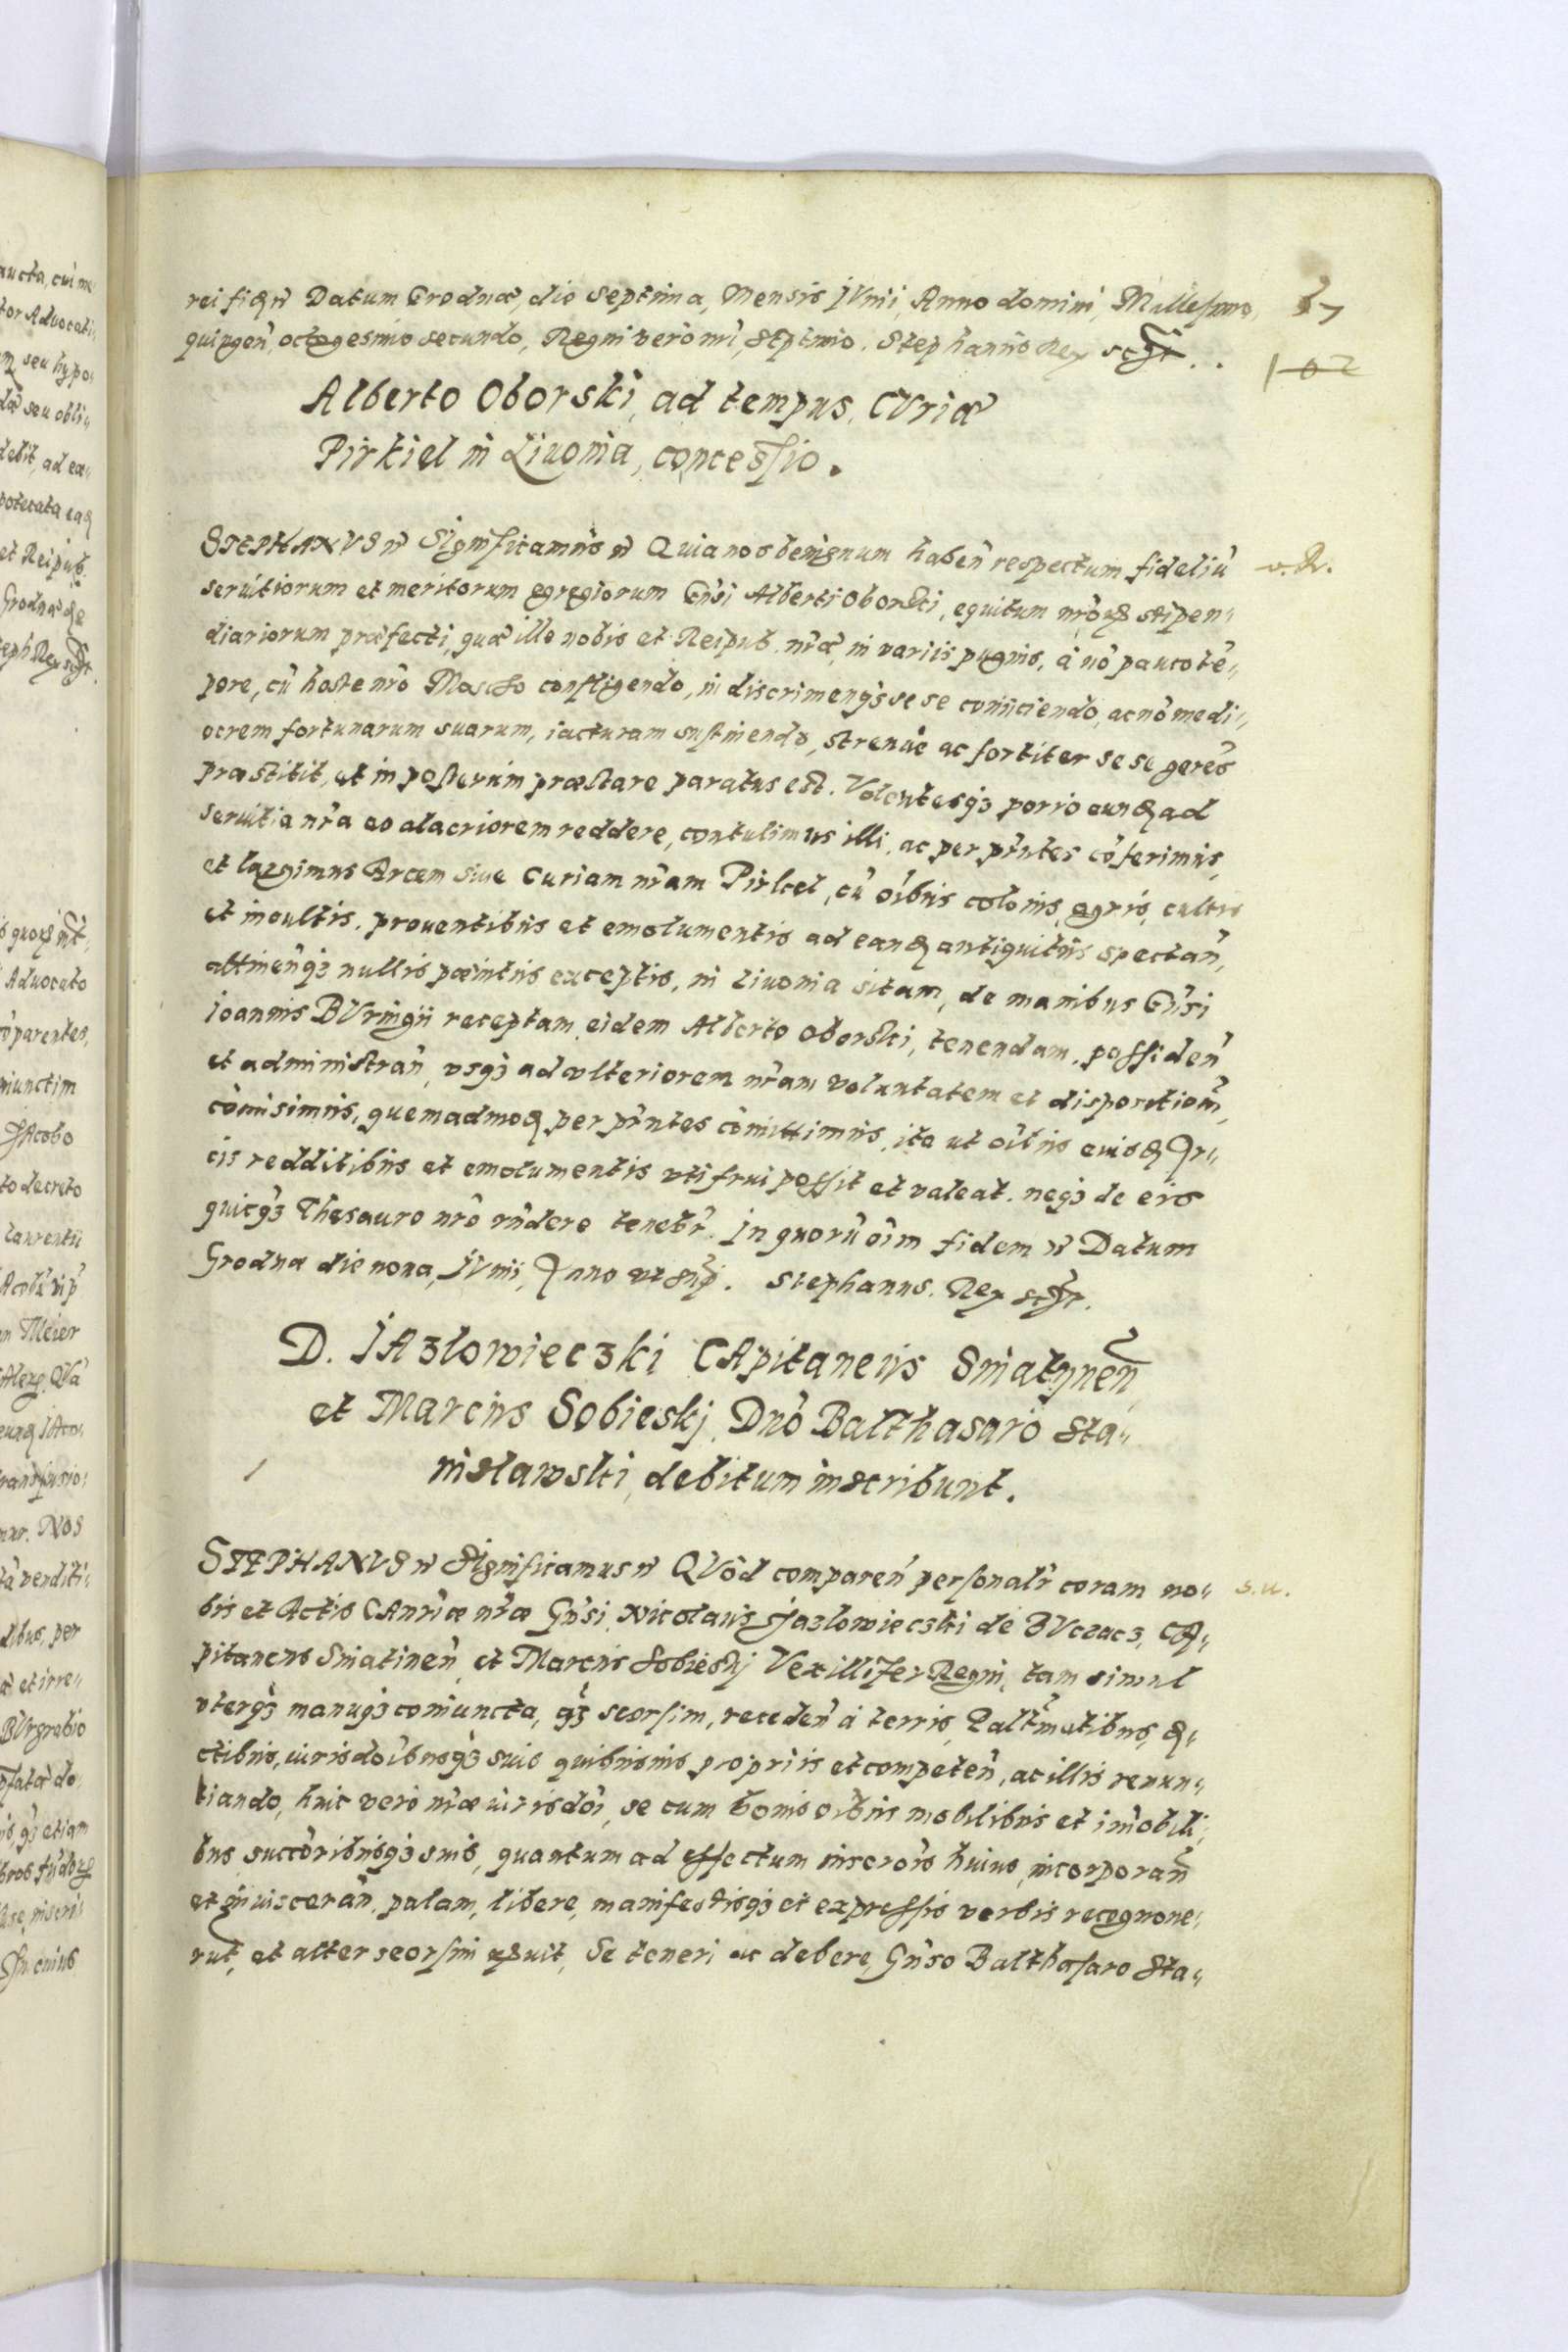 rei fid. Datum Grodnæ, die Septima, Mensis JVnii, Anno domini, Millesimo, 67
quingen̄, octogesimo secundo, Regni vero nr̄i, Septimo. Stephanus Rex scr̄t.. 102
Alberto Oborski, ad tempus, CVriæ
Pirkiel in Liuonia, concessio.
STEPHANVS Significamus Quia nos benignum haben̄ respectum fideliū v.R.
seruitiorum et meritorum egregiorum Gn̄si Alberti Oborski, equitum nr̄or. stipen„
diariorum præfecti, quæ ille nobis et Reipub. nr̄æ, in variis pugnis, à nō pauco tē„
pore, cū hoste nr̄o Moscho confligendo, in discrimenq3 se se coniiciendo, ac nō medi„
ocrem fortunarum suarum, iacturam sustinendo, strenuè ac fortiter se se gerēs
præstitit, et in posterum præstare paratus est. Volentesq3 porro eund. ad
seruitia nr̄a eo alacriorem reddere, contulimus illi, ac per pr̄ntes cōferimus,
et largimus Arcem siue Curiam nr̄am Pirkel, cū oībus colonis, agris, cultis
et incultis, prouentibus et emolumentis ad eand. antiquitus spectan̄,
attinen̄q3 nullis pænitus exceptis, in Liuonia sitam, de manibus Gn̄si
Joannis BVringii receptam, eidem Alberto Oborski, tenendam, possiden̄
et administran̄, vsq3 ad vlteriorem nr̄am voluntatem et dispositiōm,
cōmisimus, quemadmod. per pr̄ntes cōmittimus, ita ut oībus eiusd. Ar„
cis redditibus et emolumentis vti frui possit et valeat. neq3 de eis
quicq3 Thesauro nr̄o rn̄dere tenebr̄. In quorū oīm fidem Datum
Grodnæ die nona, JVnii, Anno ut sup̄. Stephanus. Rex scr̄t.
D. JAzlowieczki CApitaneus Sniatynen̄,
et Marcus Sobieskj, Dn̄o Balthasaro Sta„
nislawski, debitum inscribunt.
STEPHANVS Significamus QVòd comparen̄ personalr̄ coram no„ s.u.
bis et Actis CAnr̄iæ nr̄æ Gn̄si, Nicolaus Jazlowieczki de BVczacz, CA„
pitaneus Sniatinen̄, et Marcus Sobieskj Vexillifer Regni, tam simul
vterq3 manuq3 coniuncta, q3 seorsim, receden̄ à terris, Palt̄inatibus, d„
ctibus, iurisdoībusq3 suis quibusuis propriis et competen̄, ac illis renun„
tiando, huic verò nr̄æ iurisdoī, se cum bonis oībus mobilibus et īmobili„
bus succōribusq3 suis, quantum ad effectum inscrōis huius, incorporan̄
et inuisceran̄, palam, libere, manifestisq3 et expressis verbis recognoue„
rūt, et alter seorsim Se teneri ac debere, Gn̄so Balthasaro Sta„